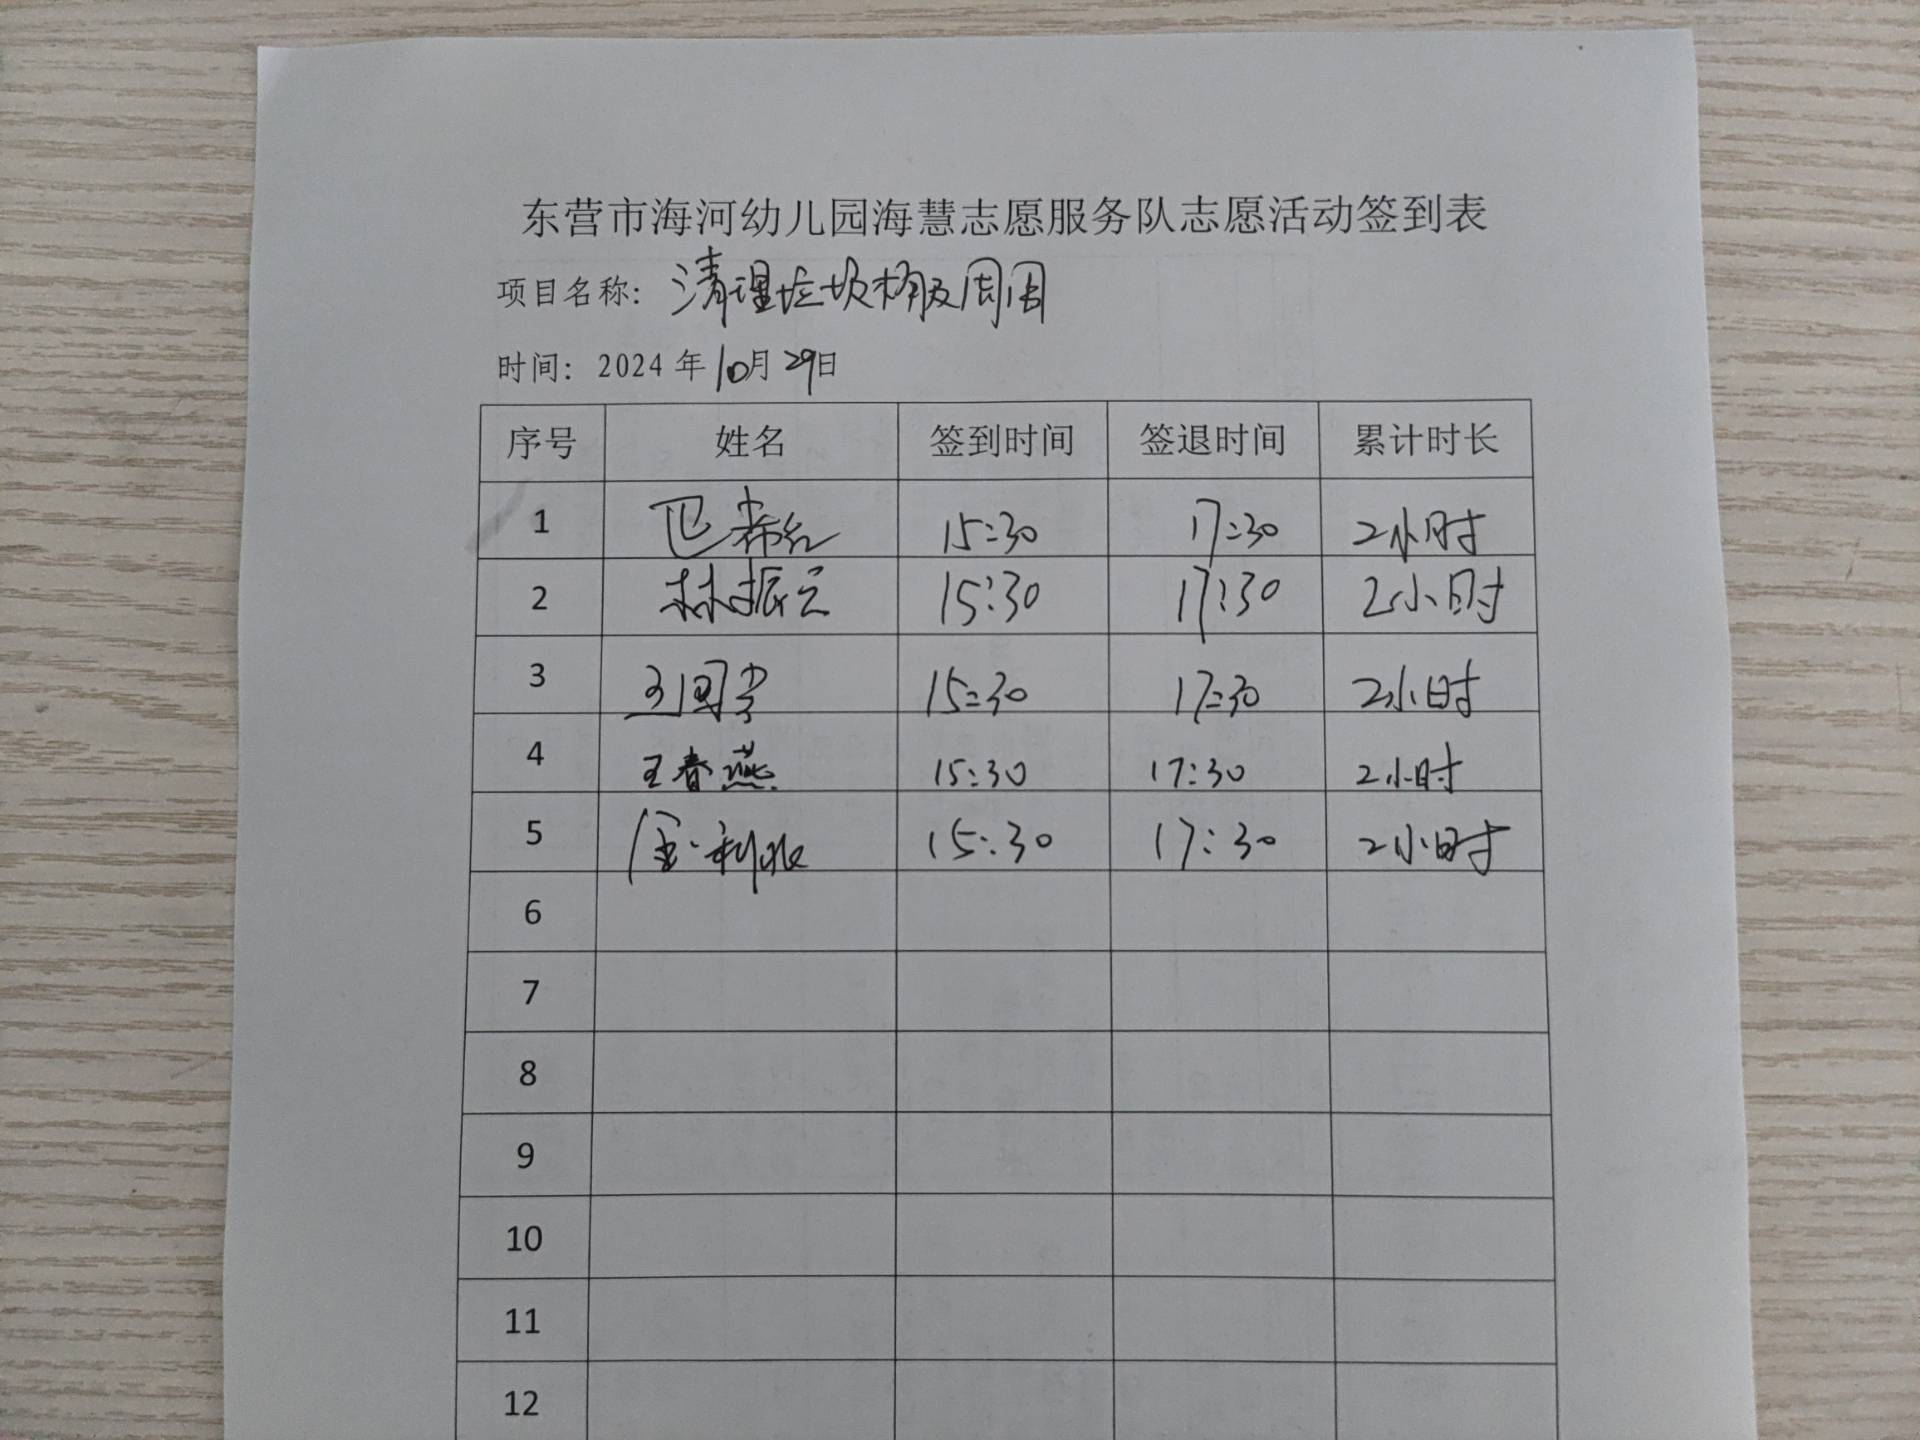 东营市海河幼儿园海慧志愿服务队志愿活动签到表
项目名称：清理垃圾桶及周围
时间：2024年10月29日
序号 姓名 签到时间 签退时间 累计时长
1 15:30 17:30 2小时
2 林振云 15:30 17:30 2小时
3 15:30 17:30 2小时
4 王春燕 15:30 17:30 2小时
5 15:30 17:30 2小时
6
7
8
9
10
11
12